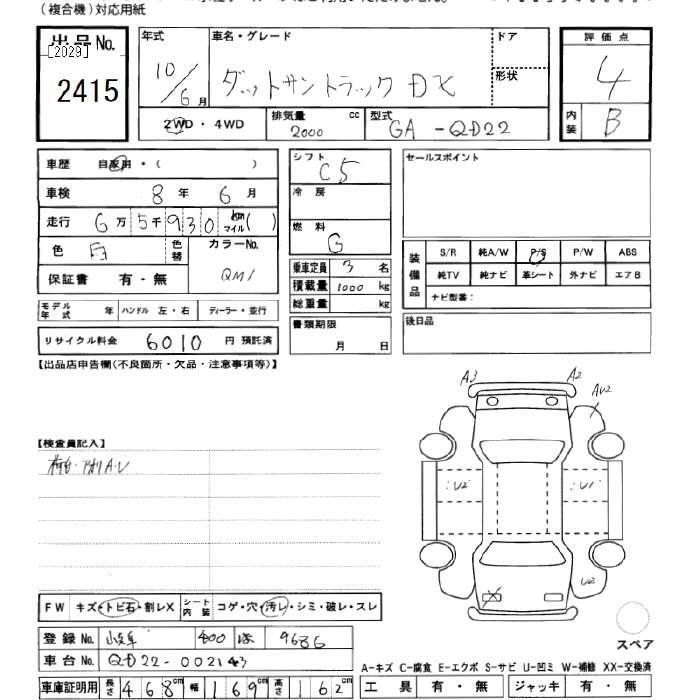 (複合機)対応用紙
出品No.
[2029]
2415
年式 10/6月
車名・グレード ダットサントラック DX
ドア
形状
評価点 4
内装 B
2WD・4WD
排気量 2000 cc
型式 GA-QD22
車歴 自家用・( )
車検 8年 6月
走行 6万5千930 km マイル( )
色 白 色替
カラーNo. QM1
保証書 有・無
モデル年式 年 ハンドル 左・右 ディーラー・並行
リサイクル料金 6010円 預託済
シフト C5
冷房
燃料 G
乗車定員 3名
積載量 1000 kg
総重量 kg
書類期限
月 日
セールスポイント
装備品 S/R 純A/W P/S P/W ABS
純TV 純ナビ 革シート 外ナビ エアB
ナビ型番:
後日品
【出品店申告欄(不良箇所・欠品・注意事項等)】
【検査員記入】
A3 A2 AU2
U2 U1
U2
X
FW キズ・トビ石・割レX シート内装 コゲ・穴・汚レ・シミ・破レ・スレ
登録No. 岐阜 400 9686
車台No. QD22-002143
車庫証明用 長さ 468cm 幅 169cm 高さ 162cm
スペア
A-キズ C-腐食 E-エクボ S-サビ U-凹ミ W-補修 XX-交換済
工具 有・無 ジャッキ 有・無